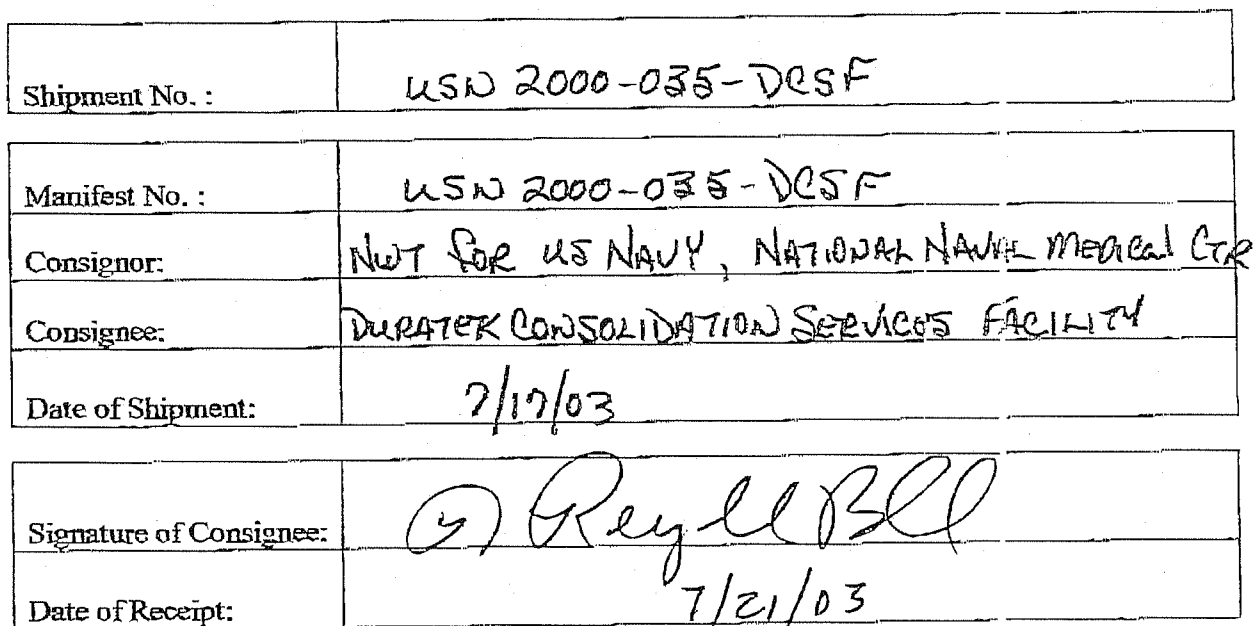 Shipment No. : USN 2000-035-DCSF
Manifest No. : USN 2000-035-DCSF
Consignor: NWT FOR US NAVY, NATIONAL NAVAL MEDICAL CTR
Consignee: DURATEK CONSOLIDATION SERVICES FACILITY
Date of Shipment: 7/17/03
Signature of Consignee:
Date of Receipt: 7/21/03